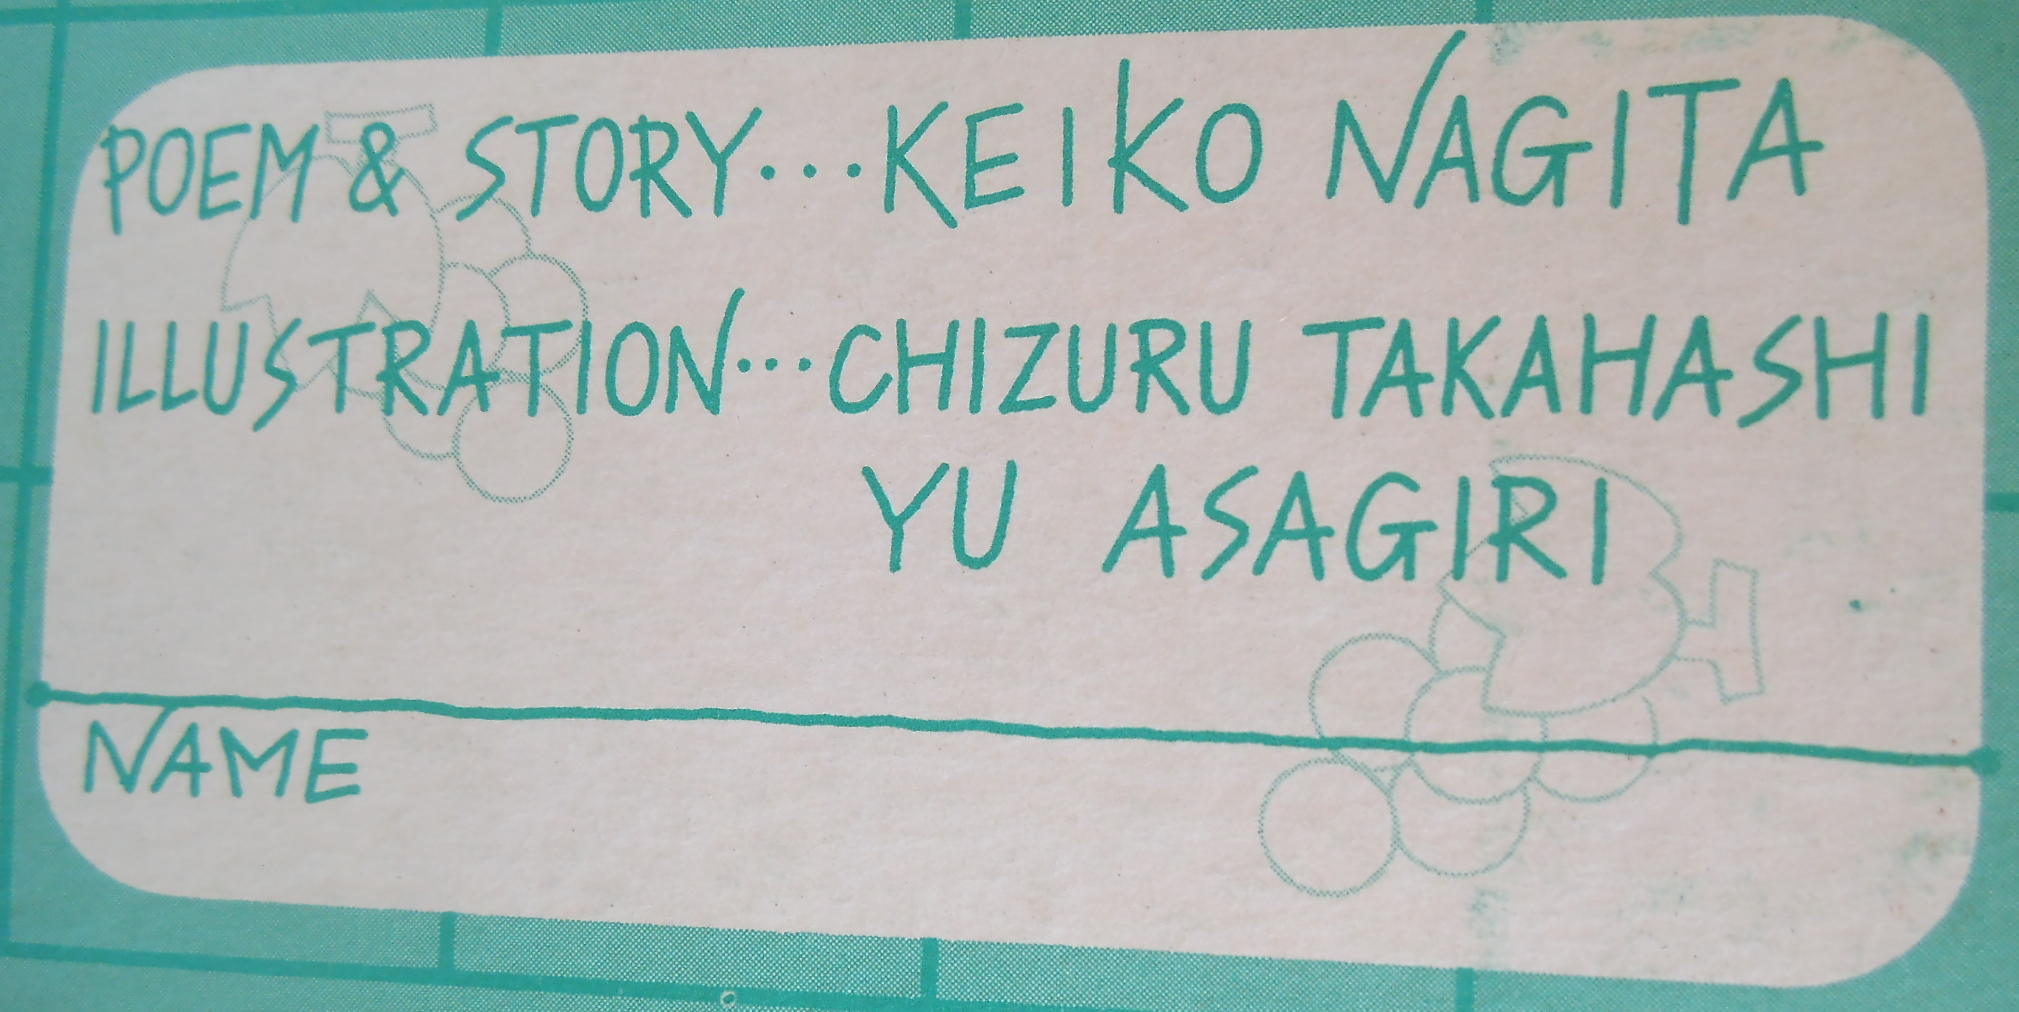 POEM & STORY...KEIKO NAGITA
ILLUSTRATION...CHIZURU TAKAHASHI
YU ASAGIRI
NAME